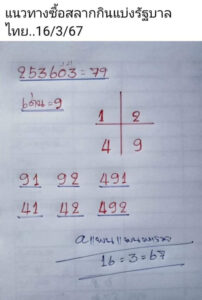 แนวทางซื้อสลากกินแบ่งรัฐบาล
ไทย..16/3/67
253603 = 79
6เด่น = 9
1 2
4 9
91 92 491
41 42 492
16 = 3 = 67